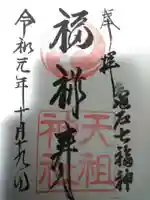 奉拝
亀石七福神
福禄寿
天祖神社
令和元年十月十九日